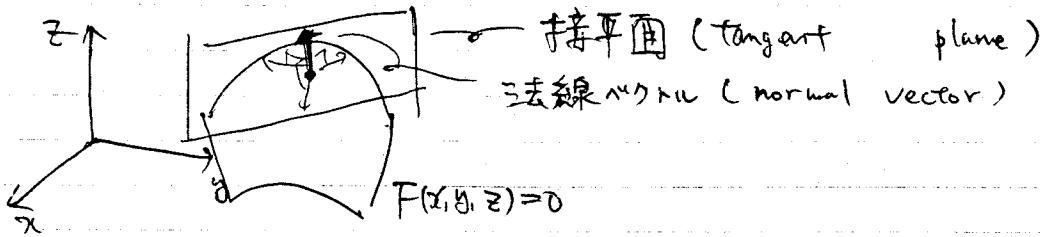 z
接平面 (tangent plane)
法線ベクトル (normal vector)
y
F(x, y, z) = 0
x